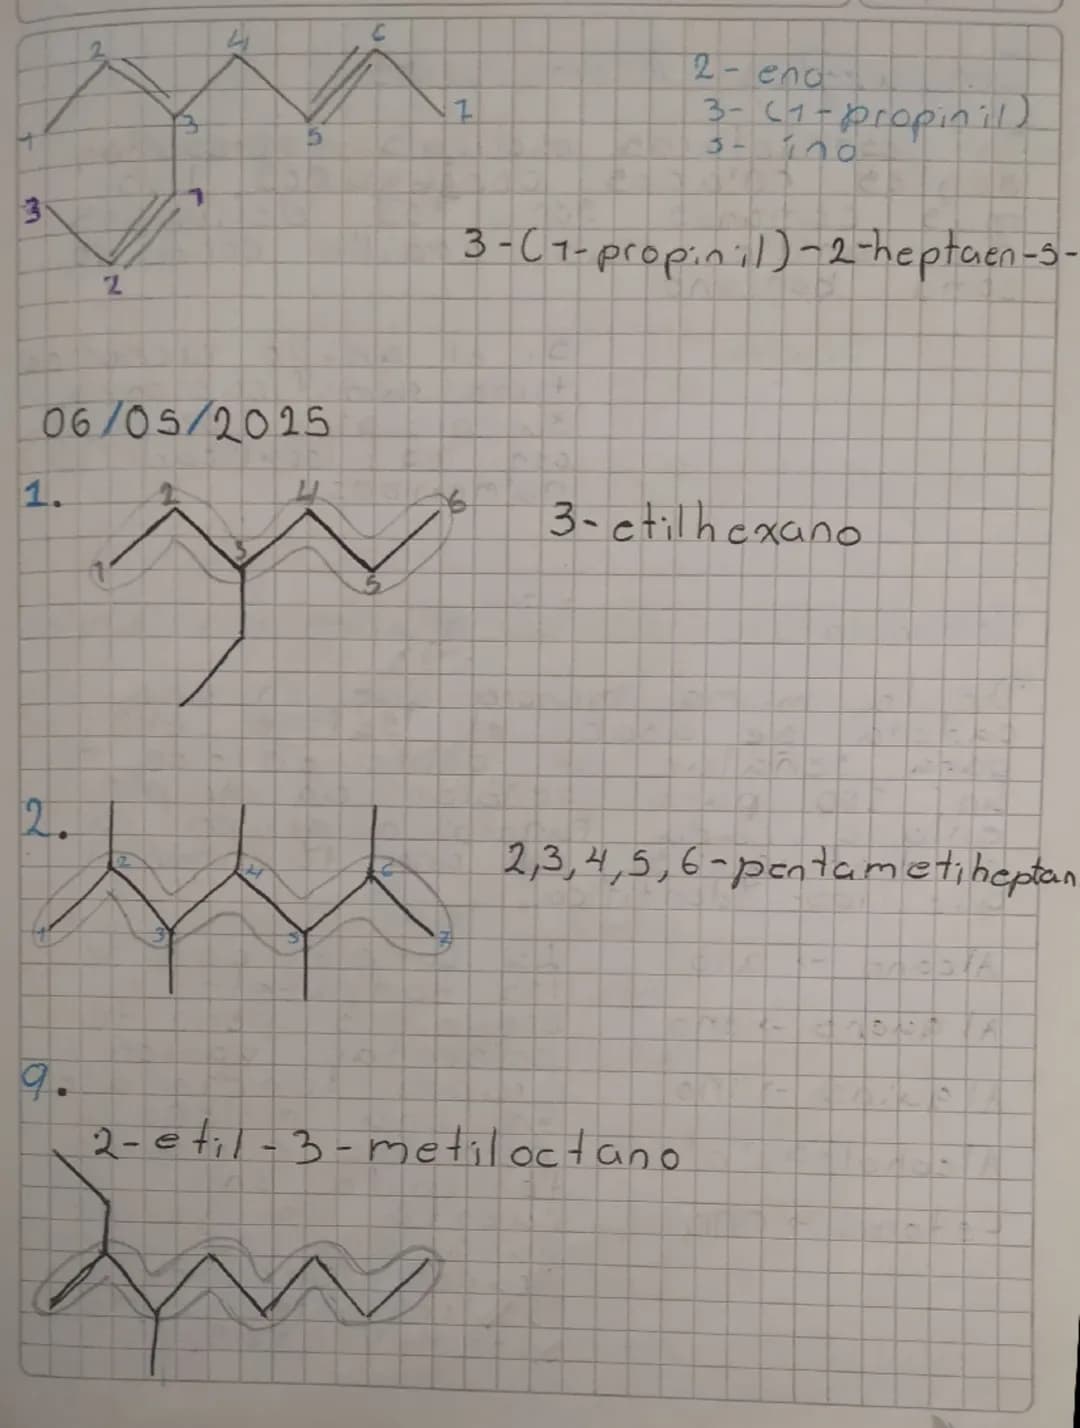 2 4 6
1 3 5 7
3 1
2
2- eno
3- (1-propinil)
5- ino
3-(1-propinil)-2-heptaen-5-
06/05/2025
1.
2 4 6
1 3 5
3-etilhexano
2.
2 4 6
1 3 5 7
2,3,4,5,6-pentametiheptan
9.
2-etil-3-metiloctano